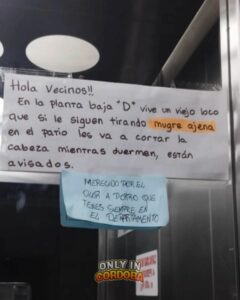 Hola Vecinos!!
En la planta baja "D" vive un viejo loco
que si le siguen tirando mugre ajena
en el patio les va a cortar la
cabeza mientras duermen, están
avisados.
MERECIDO POR EL
OLOR A PORRO QUE
TENES SIEMPRE EN
EL DEPARTAMENTO
ONLY IN
CORDOBA